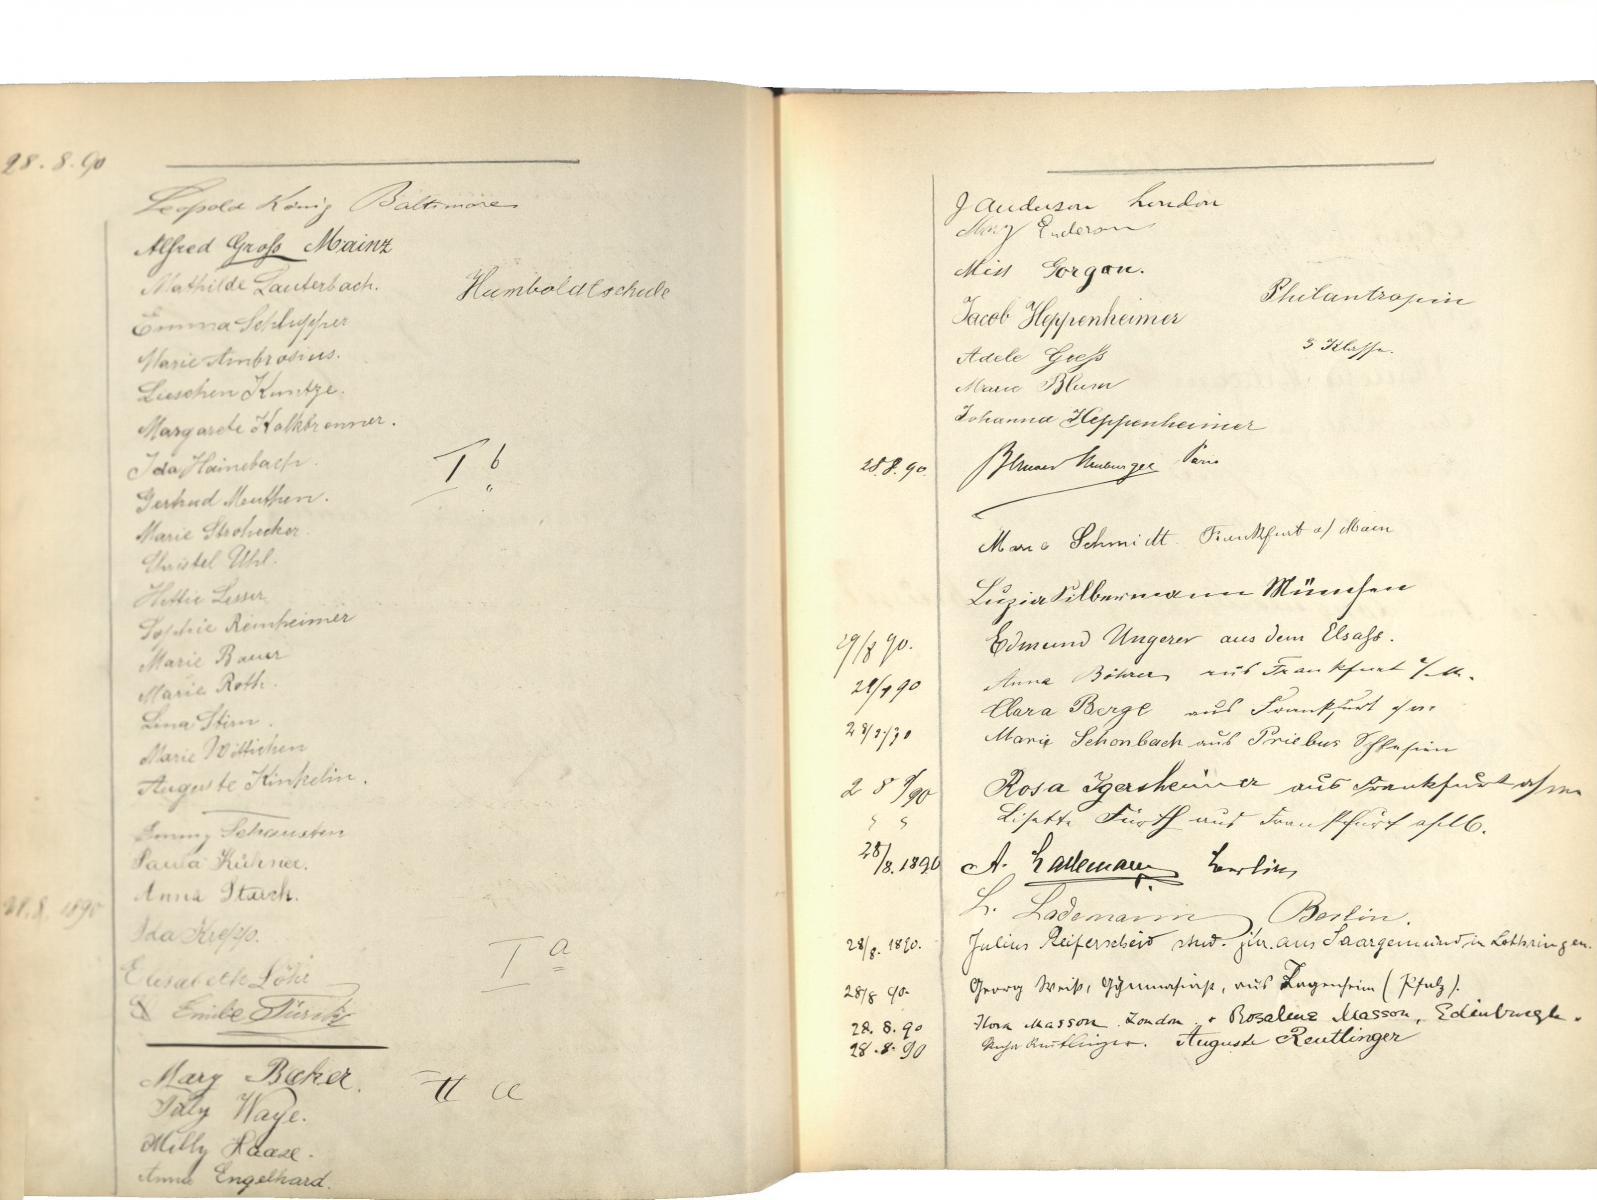 28. 8. 90
Leopold König Baltimore
Alfred Groß Mainz
Mathilde Lauterbach. Humboldtschule
Emma Schlupper
Marie Ambrosius.
Lieschen Kuntze.
Margarete Kalkbrenner.
Ida Hainebach. I b
Gertrud Menthen. "
Marie Strohecker.
Christel Uhl.
Hettie Lesser
Sophie Reinheimer
Marie Bauer
Marie Roth.
Lina Stirn.
Marie Wittichen
Auguste Kinkelin.
Emmy Schausten
Paula Kühner.
Anna Starck.
28.8. 1890
Ida
Elisabeth Löhr I a
Emilie
Mary Baker. II a
Waye.
Milly Haase.
Anna Engelhard.
J Anderson London
Mary Enderson
Miss Gorgon.
Philantropin
Jacob Heppenheimer
3 Klasse.
Adele
Marie Blum
Johanna Heppenheimer
28.8.90. Neuburger Paris
Marie Schmidt. Frankfurt a/ Main
Luzia Silbermann München
29/8 90. Edmund Ungerer aus dem Elsaß.
Anna Böhrer aus Frankfurt a/M.
90 Clara Berge aus Frankfurt a/m
Marie Schönbach aus Priebus Schlesien
2 8 8/90 Rosa Igersheimer aus Frankfurt a/m
" " Lisette Fürth aus Frankfurt a/M.
28/8. 1890 A. Lademann Berlin
L. Lademann Berlin.
28/8. 1890. Julius Reiferscheid stud. jur. aus Saargemünd in Lothringen.
28/8 90. Georg Weiß, Gymnasiast, aus (Pfalz).
28. 8. 90 Flora Masson. London. + Rosaline Masson, Edinburgh.
28. 8. 90 Reutlinger. Auguste Reutlinger